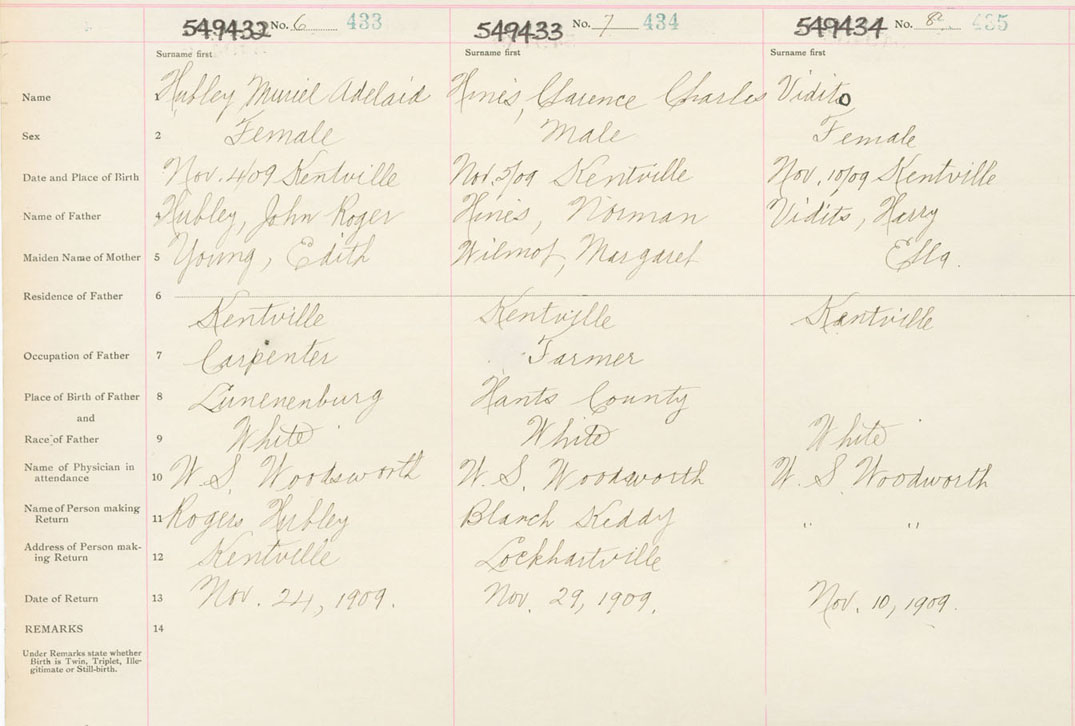 549432 No. 6 433 549433 No. 7 434 549434 No. 8 435
Surname first Surname first Surname first
Name 1 Hubley Muriel Adelaid Hines, Clarence Charles Vidito
Sex 2 Female Male Female
Date and Place of Birth 3 Nov. 4/09 Kentville Nov. 5/09 Kentville Nov. 10/09 Kentville
Name of Father 4 Hubley, John Roger Hines, Norman Vidito, Harry
Maiden Name of Mother 5 Young, Edith Wilmot, Margaret Ella.
Residence of Father 6
Kentville Kentville Kentville
Occupation of Father 7 Carpenter Farmer
Place of Birth of Father 8 Lunenenburg Hants County
and
Race of Father 9 White White White
Name of Physician in
attendance 10 W. S. Woodsworth W. S. Woodsworth W. S. Woodworth
Name of Person making
Return 11 Rogers Hubley Blanch Keddy " "
Address of Person mak-
ing Return 12 Kentville Lockhartville
Date of Return 13 Nov. 24, 1909. Nov. 29, 1909. Nov. 10, 1909.
REMARKS 14
Under Remarks state whether
Birth is Twin, Triplet, Ille-
gitimate or Still-birth.